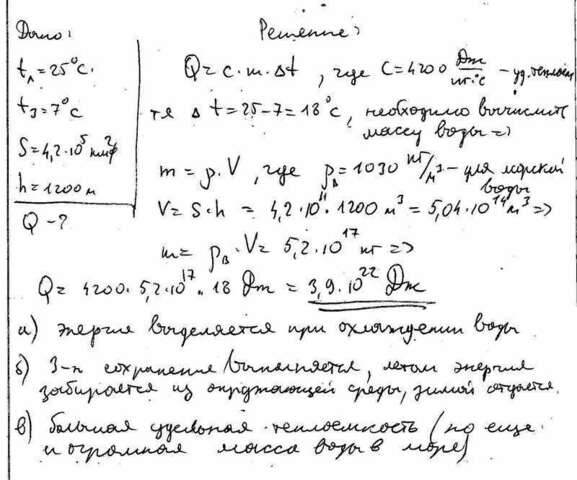 Дано:
Решение:
t л = 25°С.
t з = 7°С
S = 4,2·10⁵ км²
h = 1200 м
Q - ?
Q = c·m·Δt, где C = 4200 Дж/кг·°С - уд. теплоем
тк Δt = 25-7 = 18°С, необходимо вычислить
массу воды =>
m = ρ·V, где ρв = 1030 кг/м³ - для морской
воды
V = S·h = 4,2·10¹¹·1200 м³ = 5,04·10¹⁴ м³ =>
m = ρв·V = 5,2·10¹⁷ кг =>
Q = 4200·5,2·10¹⁷·18 Дж = 3,9·10²² Дж
а) энергия выделяется при охлаждении воды
б) З-н сохранения выполняется, летом энергия
забирается из окружающей среды, зимой отдается.
в) большая удельная теплоемкость (но еще
и огромная масса воды в море)